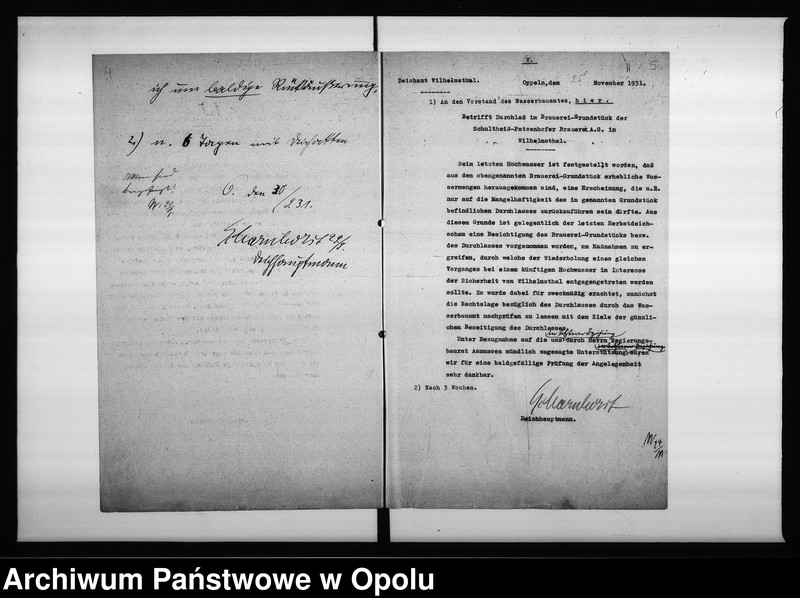 4
ich um baldige Rückäußerung.
2.) n. 6 Tagen
O. den 30
Deichhauptmann
V.
5.
Deichamt Wilhelmsthal.
Oppeln, den 25 November 1931.
1) An den Vorstand des Wasserbauamtes, hier.
Betrifft Durchlaß im Brauerei-Grundstück der
Schultheiß-Patzenhofer Brauerei A.G. in
Wilhelmsthal.
Beim letzten Hochwasser ist festgestellt worden, daß
aus dem obengenannten Brauerei-Grundstück erhebliche Was-
sermengen herausgekommen sind, eine Erscheinung, die u.E.
nur auf die Mangelhaftigkeit des in genannten Grundstück
befindlichen Durchlasses zurückzuführen sein dürfte. Aus
diesem Grunde ist gelegentlich der letzten Herbstdeich-
schau eine Besichtigung des Brauerei-Grundstücks bezw.
des Durchlasses vorgenommen worden, um Maßnahmen zu er-
greifen, durch welche der Wiederholung eines gleichen
Vorganges bei einem künftigen Hochwasser im Interesse
der Sicherheit von Wilhelmsthal entgegengetreten werden
sollte. Es wurde dabei für zweckmäßig erachtet, zunächst
die Rechtslage bezüglich des Durchlasses durch das Was-
serbauamt nachprüfen zu lassen mit dem Ziele der gänzli-
chen Beseitigung des Durchlasses.
Unter Bezugnahme auf die uns durch Herrn Regierungs-
baurat Asmussen mündlich zugesagte Unterstützung wären
wir für eine baldgefällige Prüfung der Angelegenheit
sehr dankbar.
2) Nach 3 Wochen.
Deichhauptmann.
Archiwum Państwowe w Opolu